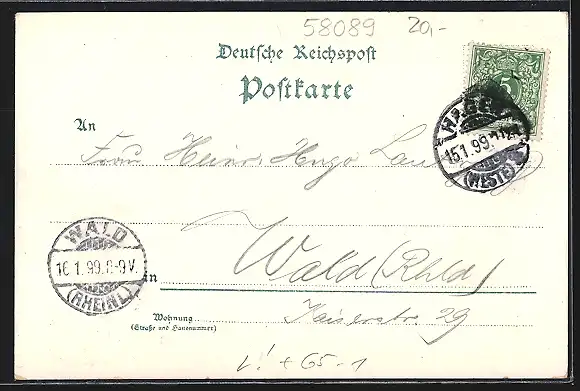 58089 20,-
Deutsche Reichspost
Postkarte
HAGEN
15.1.99
(WESTF.)
5
An
Frau Heinr. Hugo
WALD
16.1.99.8-9V.
(RHEINL)
in Wald (Rhld)
Wohnung
(Straße und Hausnummer)
Kaiserstr. 29
L! + 65-1